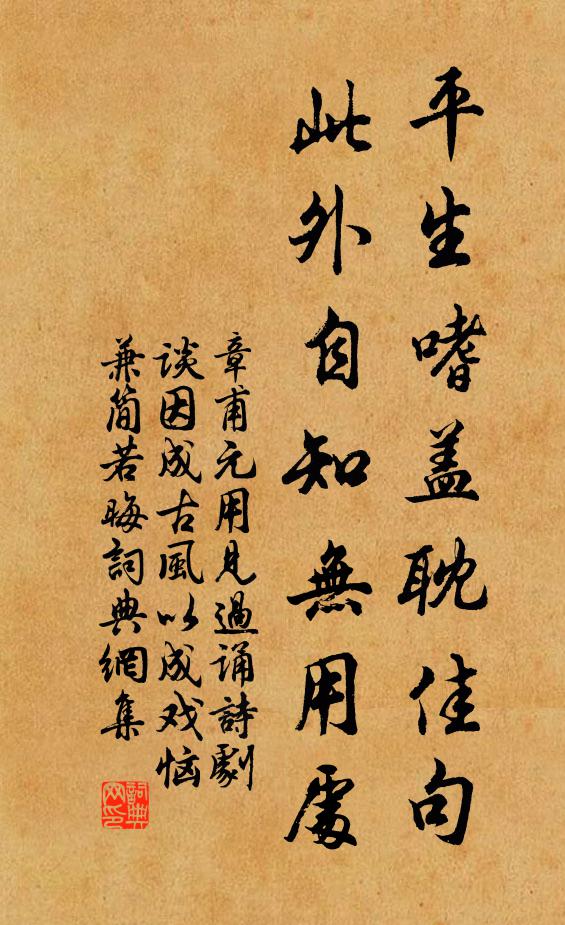 平生嗜盖耽佳句
此外自知無用處
章甫元用見過诵詩劇
谈因成古風以成戏恼
兼简若晦詞典網集
詞典网印